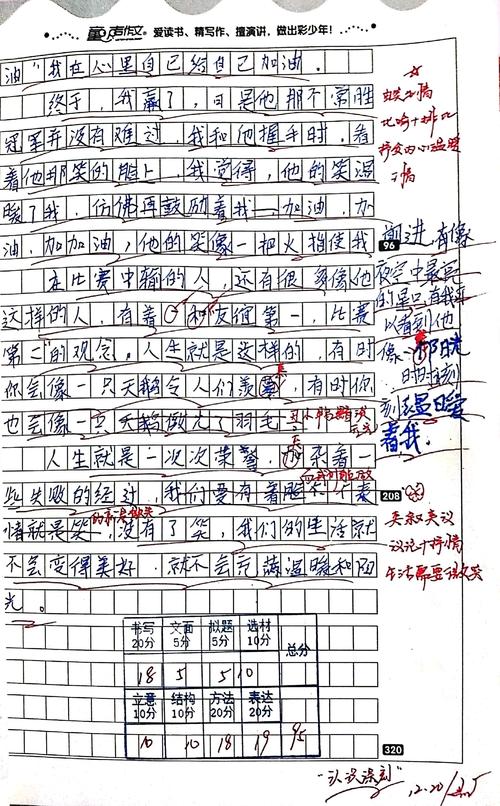 童声作文® 爱读书、精写作、擅演讲，做出彩少年！
油"我在心里自己给自己加油。
终于，我赢了，可是他那个常胜
冠军并没有难过，我和他握手时，看
着他那笑的脸上，我觉得，他的笑温
暖了我，仿佛再鼓励着我——加油，加
油，加加油，他的笑像一把火指使我
前进，有像
96
夜空中最亮
的星
以看到他
刻温暖
着我。
在比赛中输的人，还有很多像他
这样的人，有着和友谊第一，比赛
第二"的观念，人生就是这样的，有时
你会像一只天鹅令人们羡慕，有时你
也会像一只天鹅做光了羽毛
人生就是一次次荣誉，杂着一
些失败的经过，我们要有着
情就是笑，没有了笑，我们的生活就
不会变得美好，就不会充满温暖和阳
光。
208
议论十抒情
生活需要
书写 20分 文面 5分 拟题 5分 选材 10分 总分
18 5 5 10
立意 10分 结构 10分 方法 20分 表达 20分
10 10 18 19 95
320
"认识深刻"
12.20